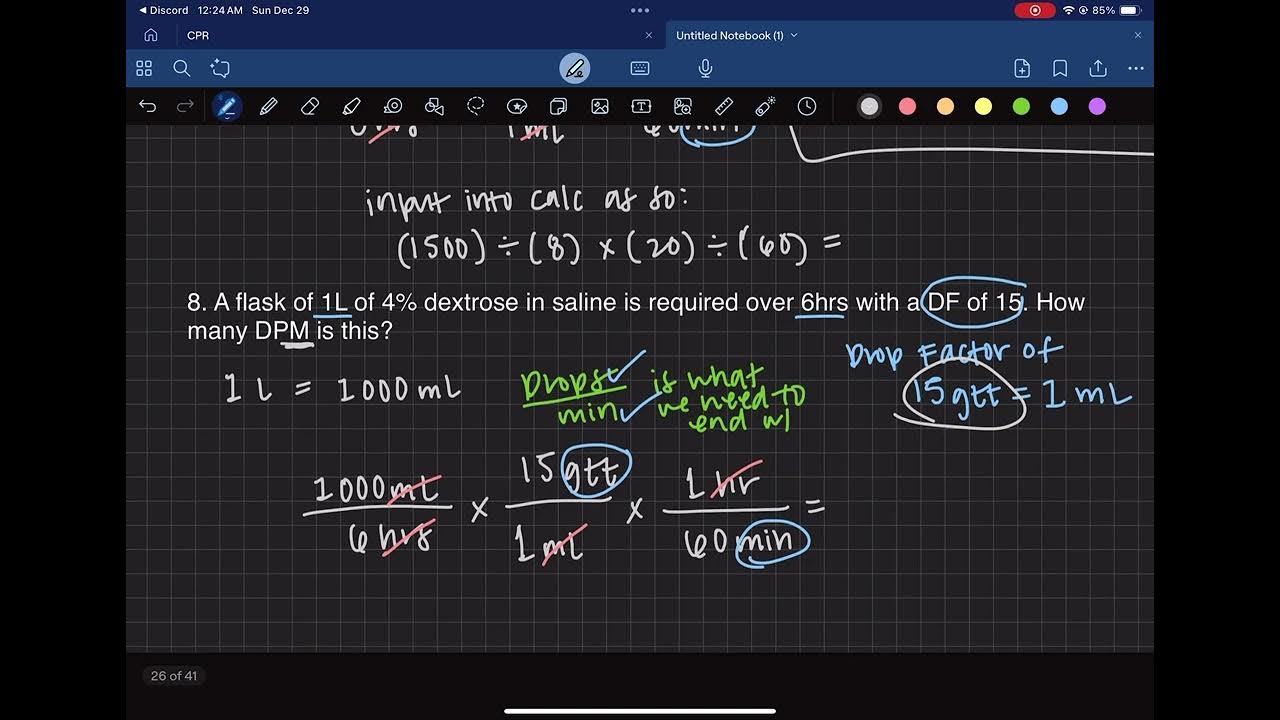 Discord 12:24 AM Sun Dec 29
85%
CPR
Untitled Notebook (1)
input into calc as so:
(1500) ÷ (8) × (20) ÷ (60) =
8. A flask of 1L of 4% dextrose in saline is required over 6hrs with a DF of 15. How
many DPM is this?
Drop Factor of
15 gtt = 1 mL
1 L = 1000 mL
Drops
min
is what
we need to
end w/
1000 mL
6 hrs
×
15 gtt
1 mL
×
1 hr
60 min
=
26 of 41